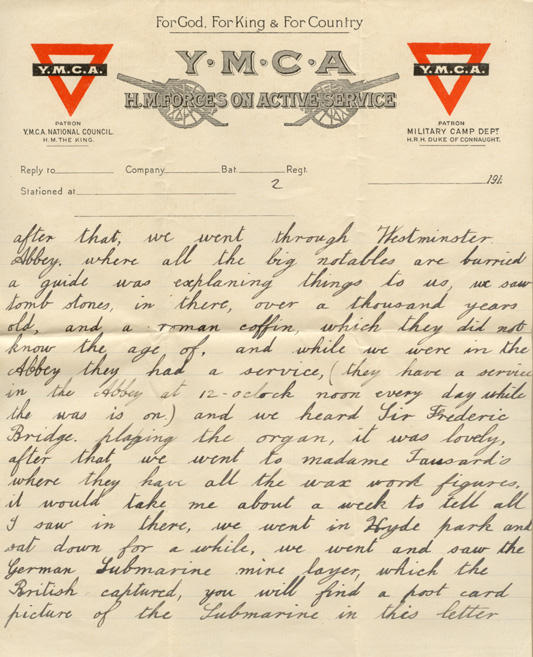 For God, For King & For Country
Y·M·C·A
H.M. FORCES ON ACTIVE SERVICE
Y.M.C.A.
PATRON
Y.M.C.A. NATIONAL COUNCIL.
H.M. THE KING.
Y.M.C.A.
PATRON
MILITARY CAMP DEPT
H.R.H. DUKE OF CONNAUGHT.
Reply to Company Bat. Regt.
Stationed at 2 191
after that, we went through Westminster
Abbey. where all the big notables are burried
a guide was explaning things to us, we saw
tomb stones, in there, over a thousand years
old, and a roman coffin, which they did not
know the age of, and while we were in the
Abbey they had a service, (they have a service
in the Abbey at 12-oclock noon every day while
the was is on.) and we heard Sir Frederic
Bridge. playing the organ, it was lovely,
after that we went to madame Tausard's
where they have all the wax work figures,
it would take me about a week to tell all
I saw in there, we went in Hyde park and
sat down for a while, we went and saw the
German Submarine mine layer, which the
British captured, you will find a post card
picture of the Submarine in this letter